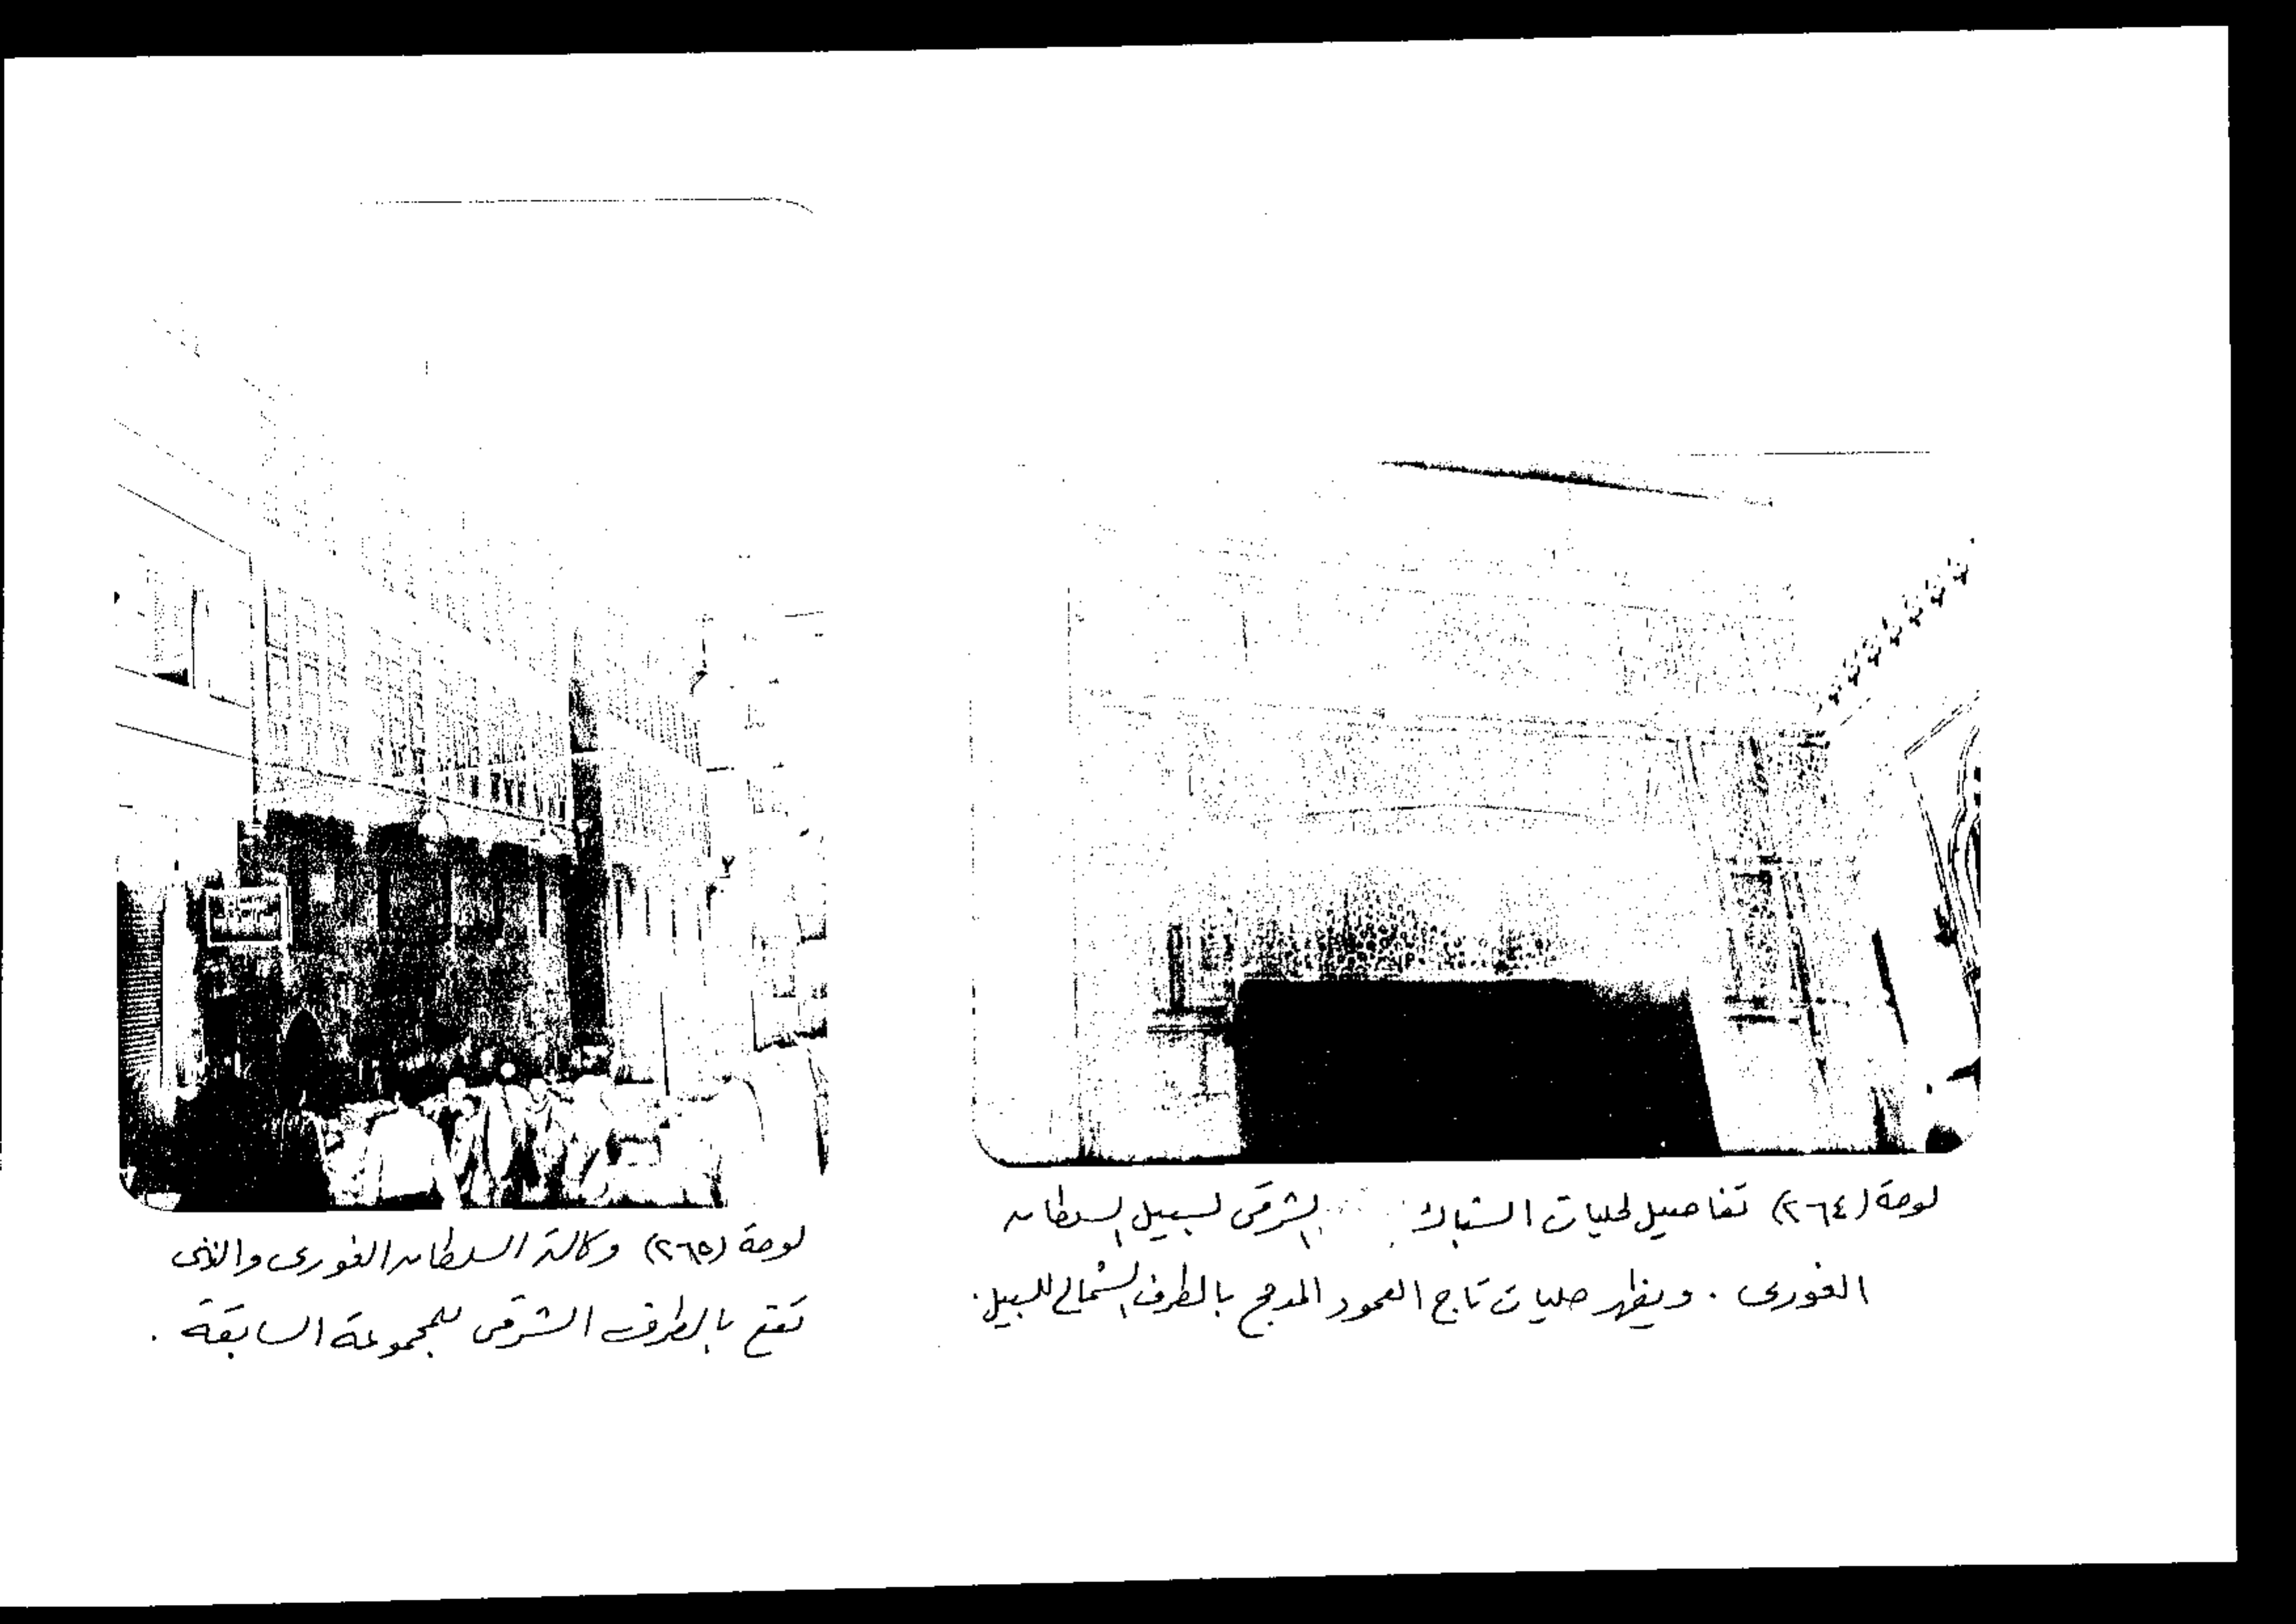 لوحة (٢٦٤) تفاصيل لحليات الشباك الشرقى لسبيل السلطان
الغورى . ويظهر حليات تاج العمود المدمج بالطرف الشمالى للسبيل .
لوحة (٢٦٥) وكالة السلطان الغورى والتى
تقع بالطرف الشرقى للمجموعة السابقة .